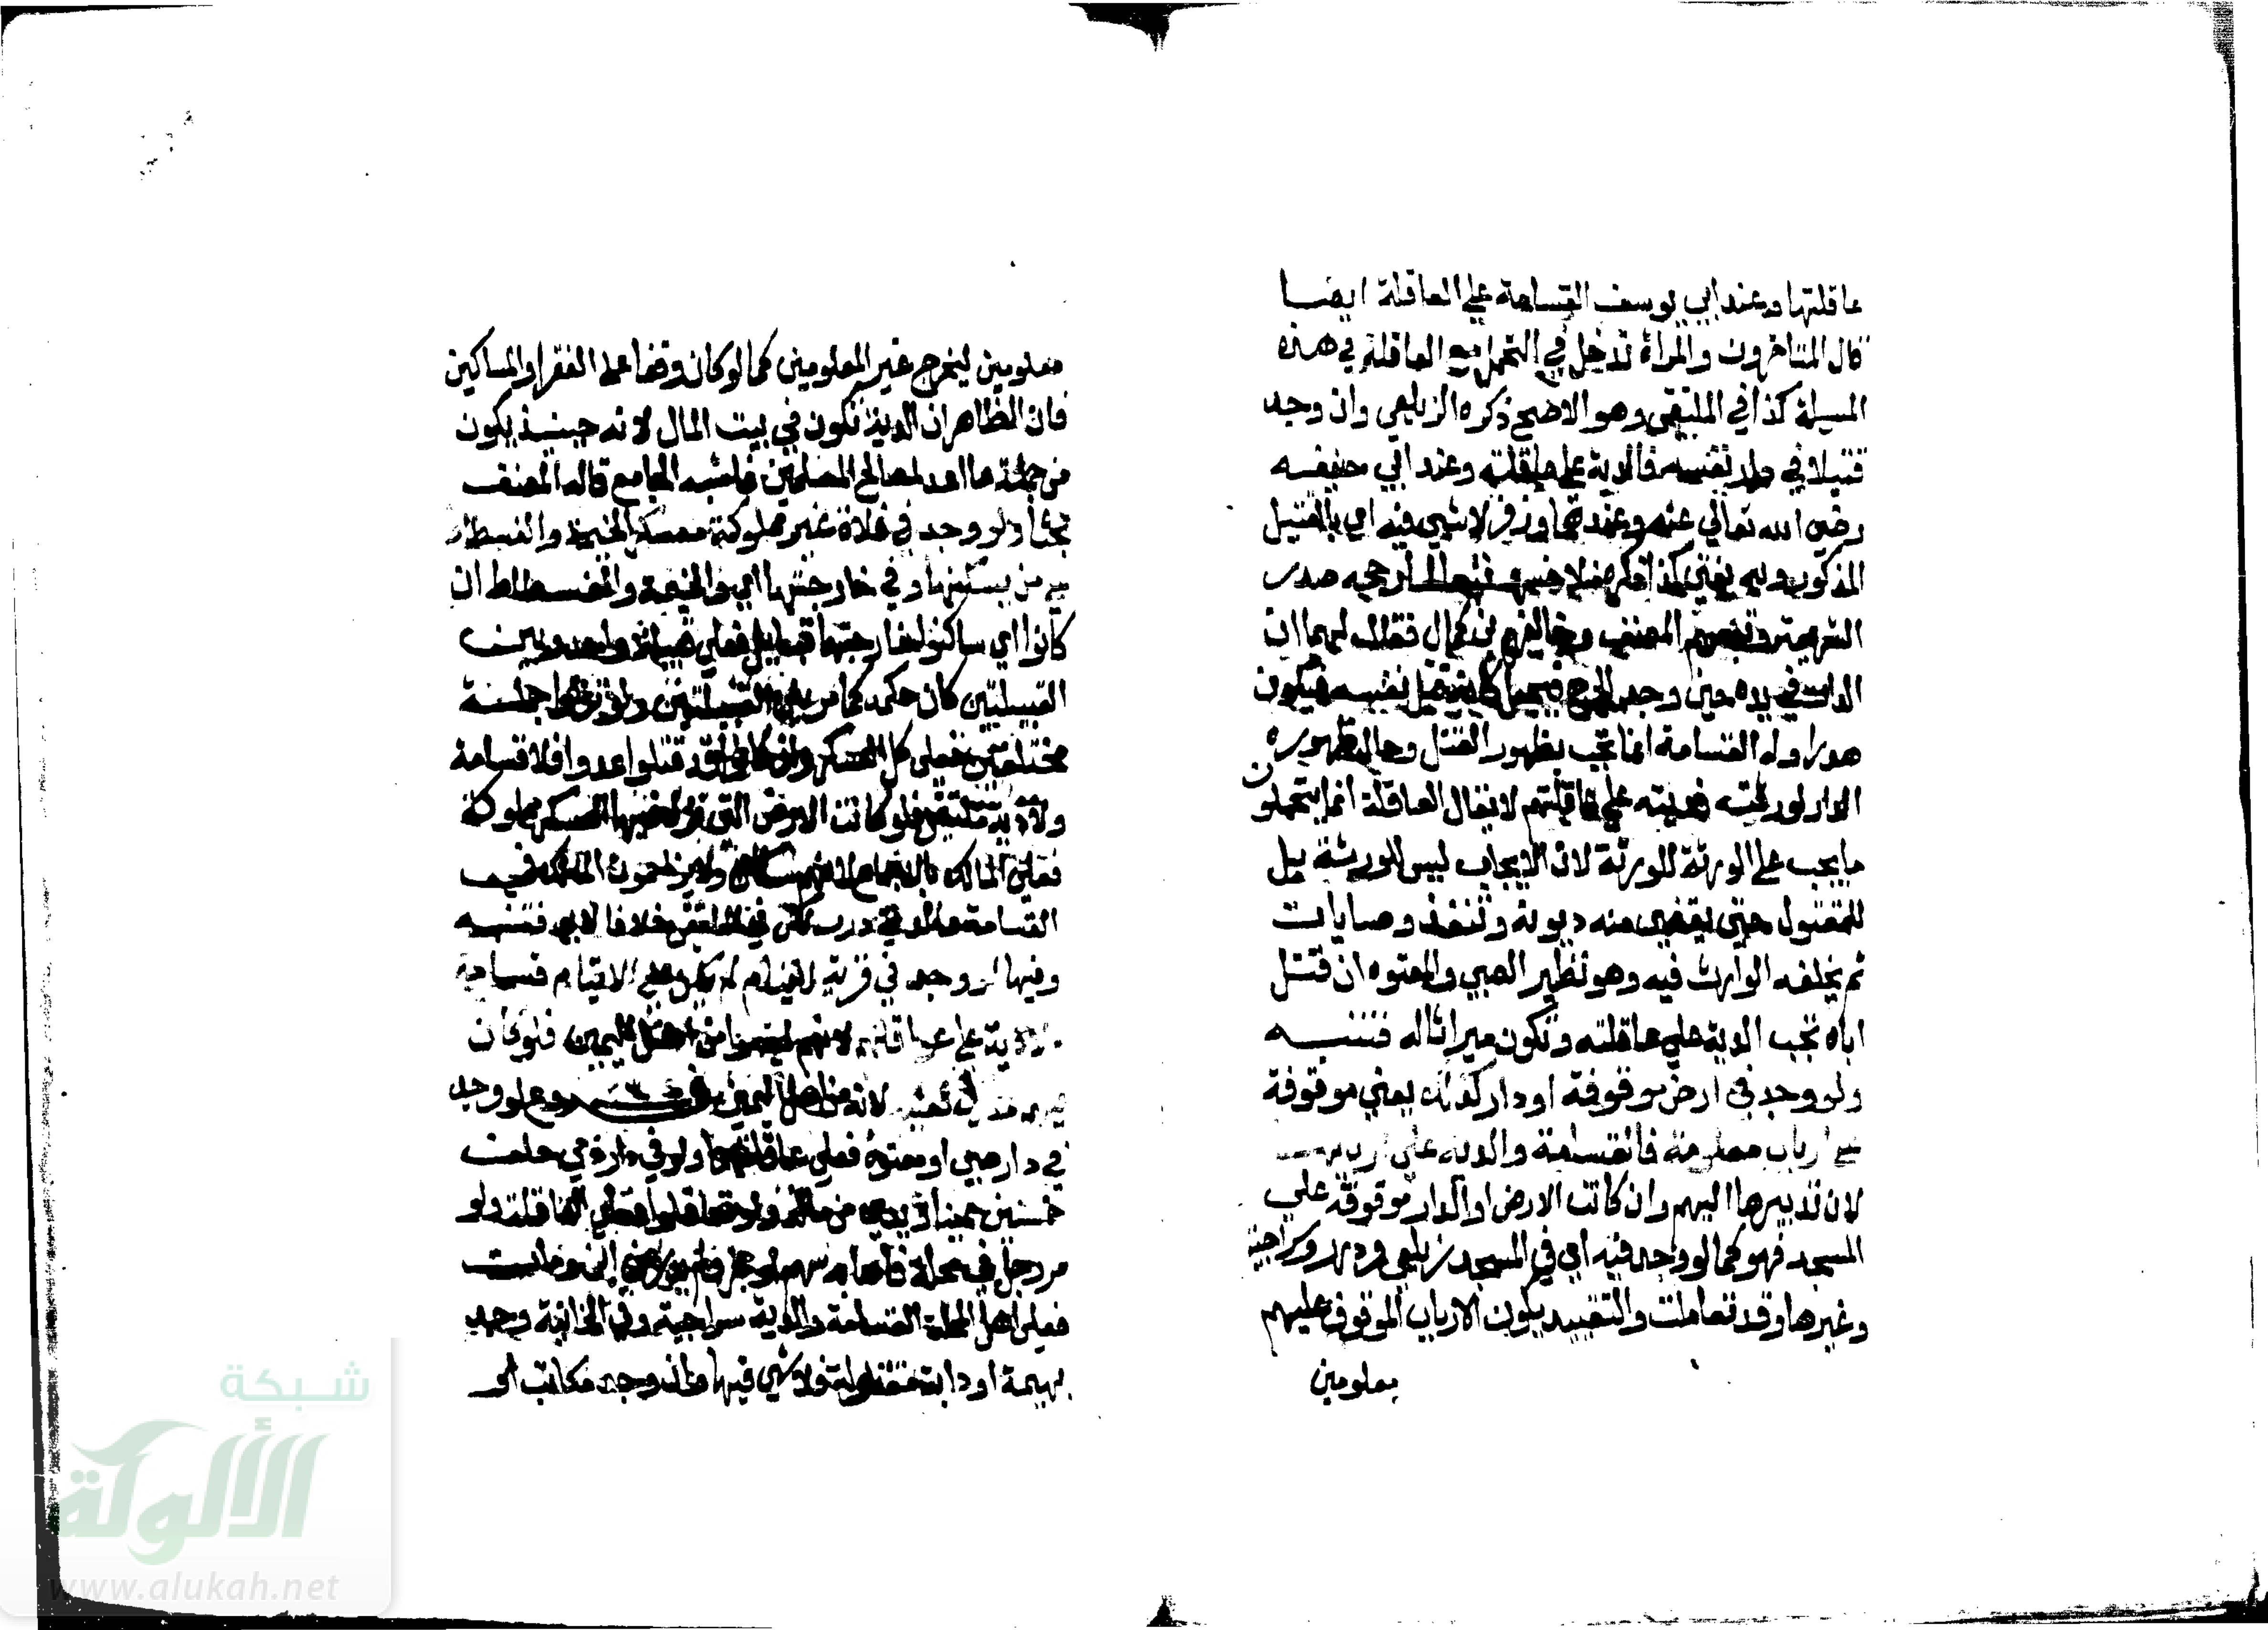 عاقلتها وعند ابي يوسف القسامة علي العاقلة ايضا
قال المتاخرون والمراة تدخل في التحمل مع العاقلة في هذه
المسيلة كذا في الملتقي وهو الاصح ذكره الزيلعي وان وجد
قتيلا في دار نفسه فالدية علي عاقلته وعند ابي حنيفه
رضي الله تعالي عنه وعندهما وزفر لا شي فيه اي بالقتيل
المذكور وبه يفتي كذا ذكره منلا خسرو تبعا لما رجحه صدر
الشريعة وتبعهم المصنف وخالفهم بن كمال فقال لهما ان
الدار في يده حين وجد الجرح فيجعل كانه قتل نفسه فيكون
هدرا وله القسامة انما تجب بظهور القتل وحال ظهوره
الدار لورثته فديته علي عاقلتهم لا يقال العاقلة انما يتحملون
ما يجب علي الورثة للورثة لان الايجاب ليس للورثة بل
للمقتول حتي يقضي منه ديونه وتنفذ وصايات
ثم يخلفه الوارث فيه وهو نظير الصبي والمعتوه ان قتل
اباه تجب الدية علي عاقلته وتكون ميراثا له فتنبه
ولو وجد في ارض موقوفة او دار كذلك يعني موقوفة
علي ارباب معلومة فالقسامة والدية علي اربابها
لان تدبيرها اليهم وان كانت الارض او الدار موقوفة علي
المسجد فهو كما لو وجد فيه اي في المسجد زيلعي ودرر وسراجية
وغيرها وقد تعاملت والتقييد بكون الارباب الموقوف عليهم
معلومين
معلومين ليخرج غير المعلومين كما لو كان وقفا علي الفقرا والمساكين
فان الظاهر ان الدية تكون في بيت المال لانه حينيذ يكون
من جملة ما اعد لمصالح المسلمين فاشبه الجامع قاله المصنف
بحثا ولو وجد في فلاة غير مملوكة ففي الخيمة والفسطاط
علي من يسكنها وفي خارجها اي الخيمة والفسطاط ان
كانوا اي ساكنوا خارجها قبايل فعلي قبيلة ولو وجد بين
القبيلتين كان حكمه كما مر بين القبيلتين ولو نزلوا جملة
مختلطين فعلي كل العسكر ولو كانوا قد قتلوا عدوا فلا قسامة
ولا دية ملتقي ولو كانت الارض التي نزل فيها العسكر مملوكة
فعلي المالك بالاجماع لانهم سكان ولا يزاحمون المالك في
القسامة والدية درر لكن في الملتقي خلافا لابي فتنبه
وفيها لو وجد في قرية لايتام لم يكن علي الايتام قسامة
ولا دية علي عاقلتهم لانهم ليسوا من اهل اليمين فلو كان
فيهم مدرك لانه من اهل اليمين ولو وجد
في دار صبي او معتوه فعلي عاقلتهما ولو في دار ذمي حلف
خمسين يمينا ويدي من ماله ولو تعاقلوا فعلي العاقلة ولو
مر رجل في محلة فاصابه سهم او حجر ومات
فعلي اهل المحلة القسامة والدية سراجية وفي الخانية وجد
بهيمة او دابة مقتولة فلا شي فيها وان وجد مكاتب او
شبكة
الألوكة
www.alukah.net